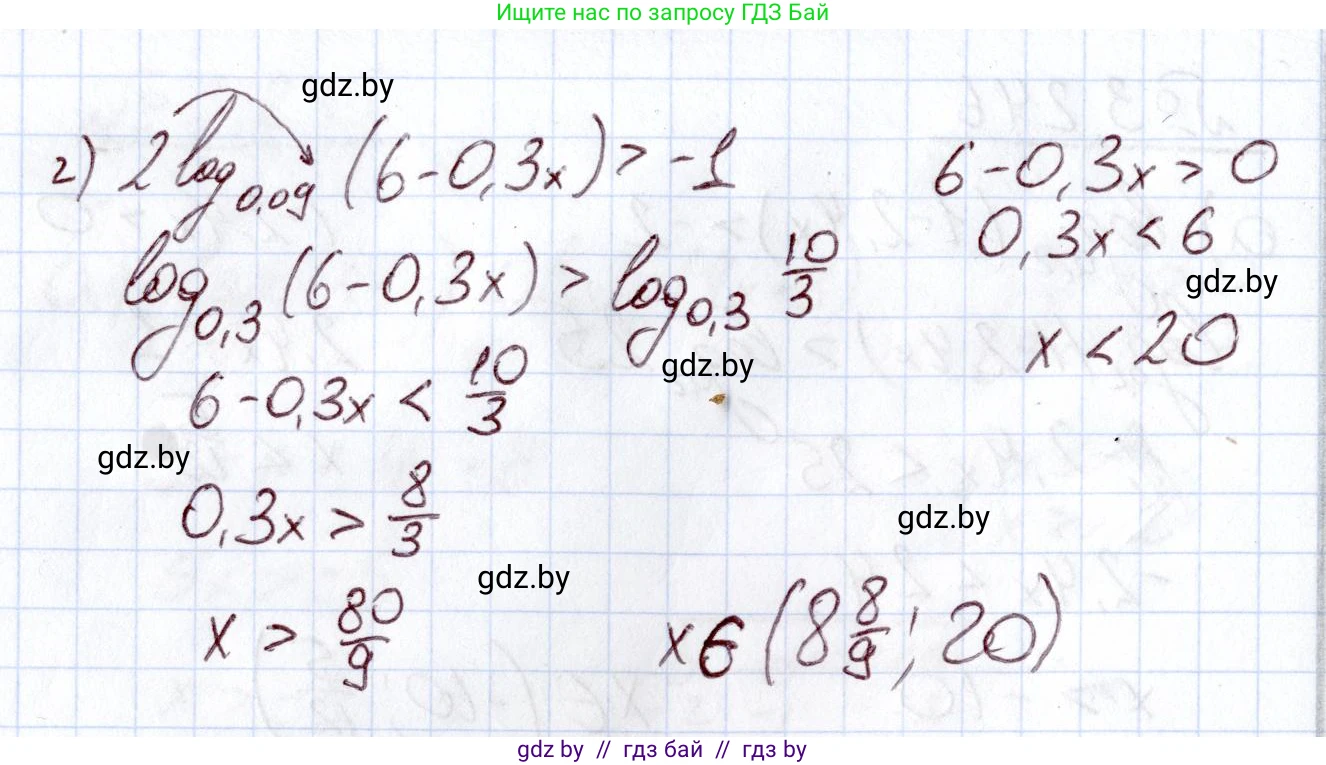 Ищите нас по запросу ГДЗ Бай
gdz.by
г) 2 log_{0,09} (6-0,3x) > -1
6-0,3x > 0
0,3x < 6
log_{0,3} (6-0,3x) > log_{0,3} 10/3
gdz.by
x < 20
gdz.by
6-0,3x < 10/3
gdz.by
0,3x > 8/3
gdz.by
gdz.by
x > 80/9
x ϵ (8 8/9; 20)
gdz by // гдз бай // гдз by